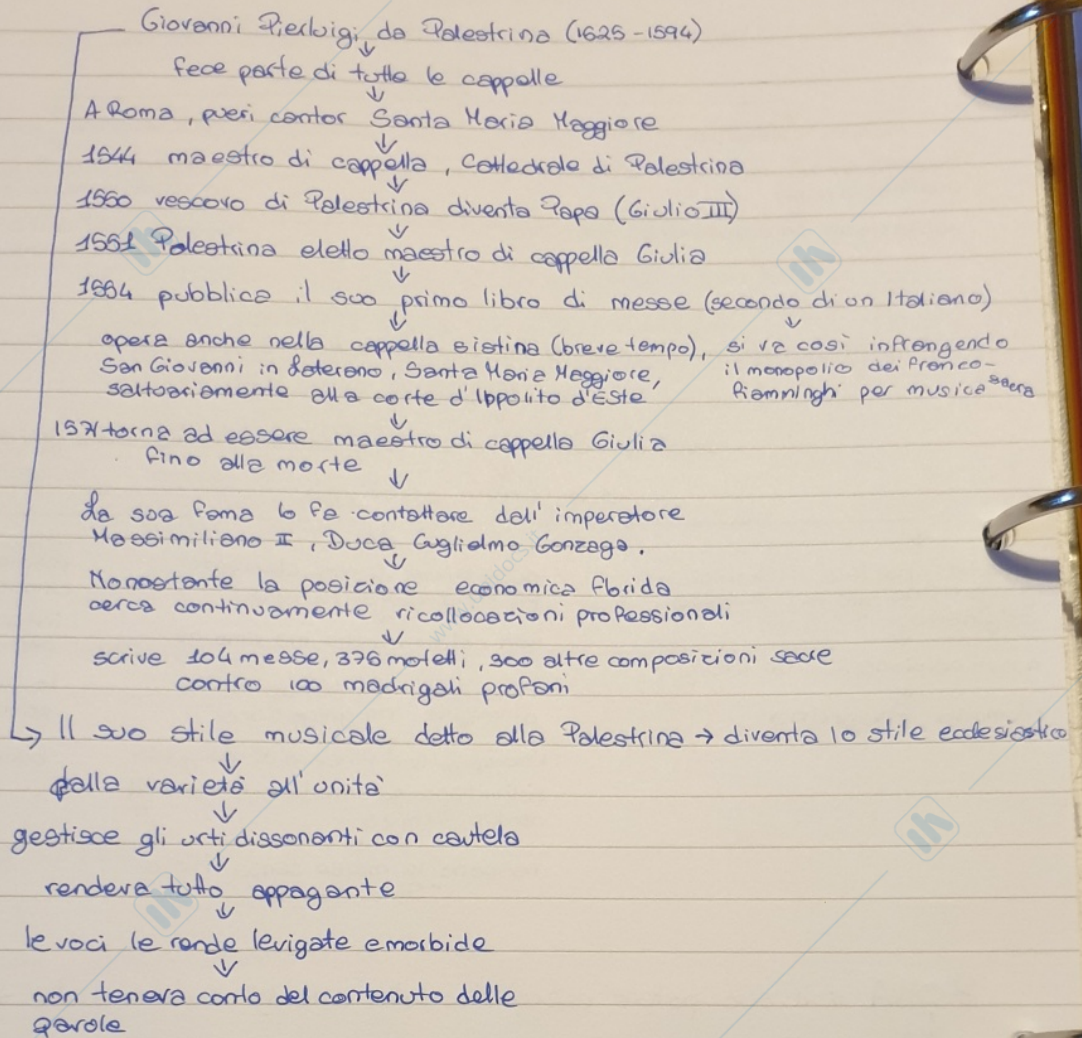 Giovanni Pierluigi da Palestrina (1525-1594)
↓
fece parte di tutte le cappelle
↓
A Roma, pueri cantor Santa Maria Maggiore
↓
1544 maestro di cappella, Cattedrale di Palestrina
↓
1550 vescovo di Palestrina diventa Papa (Giulio III)
↓
1551 Palestrina eletto maestro di cappella Giulia
↓
1554 pubblica il suo primo libro di messe (secondo di un Italiano)
↓ ↓
opera anche nella cappella sistina (breve tempo), si va così infrangendo
San Giovanni in Laterano, Santa Maria Maggiore, il monopolio dei franco-
saltuariamente alla corte d'Ippolito d'Este fiamminghi per musica sacra
↓
1571 torna ad essere maestro di cappella Giulia
fino alla morte
↓
La sua fama lo fa contattare dall'imperatore
Massimiliano II, Duca Guglielmo Gonzaga.
↓
Nonostante la posizione economica florida
cerca continuamente ricollocazioni professionali
↓
scrive 104 messe, 376 motetti, 300 altre composizioni sacre
contro 100 madrigali profani
↳ Il suo stile musicale detto alla Palestrina → diventa lo stile ecclesiastico
↓
dalla varietà all'unità
↓
gestisce gli urti dissonanti con cautela
↓
rendeva tutto appagante
↓
le voci le rende levigate e morbide
↓
non teneva conto del contenuto delle
parole